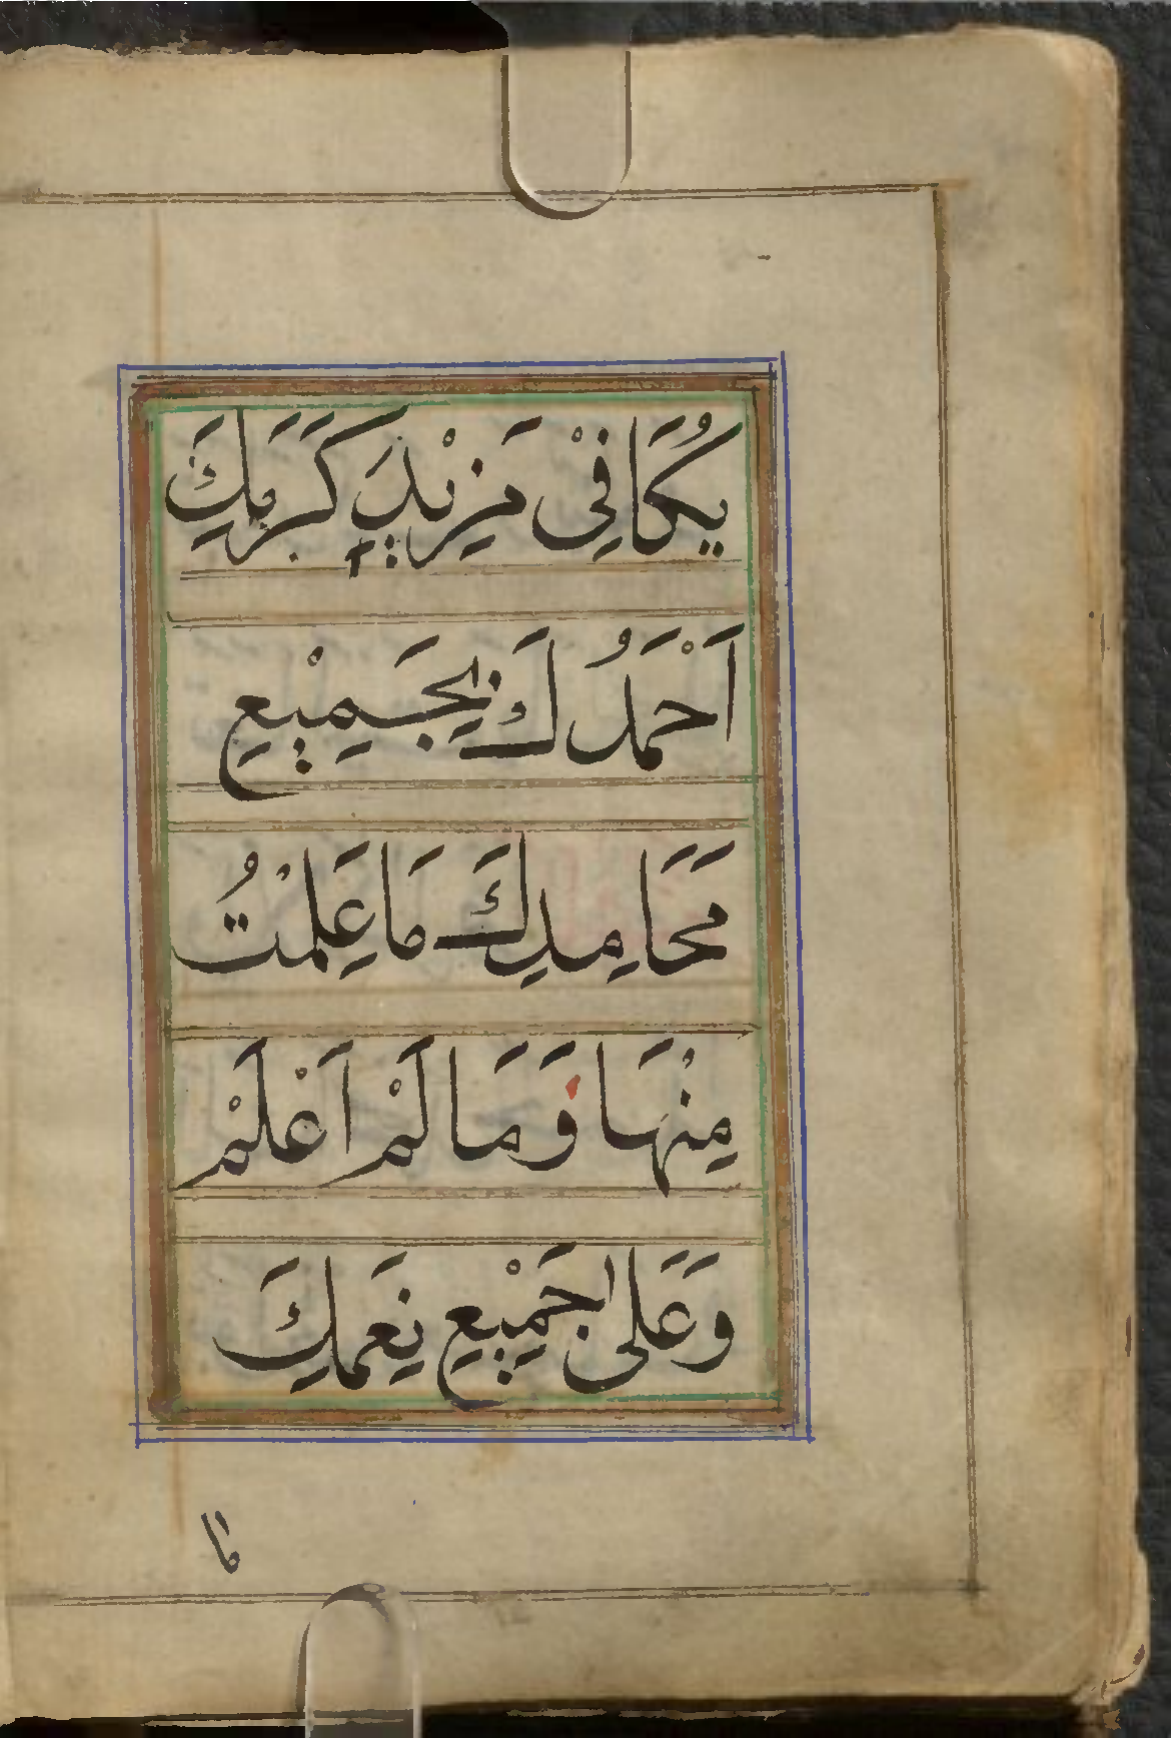 يُكَافِيْ مَزِيْدَ كَرَمِكَ
اَحْمَدُكَ بِجَمِيْعِ
مَحَامِدِكَ مَا عَلِمْتُ
مِنْهَا وَمَا لَمْ اَعْلَمْ
وَعَلٰى جَمِيْعِ نِعَمِكَ
ما